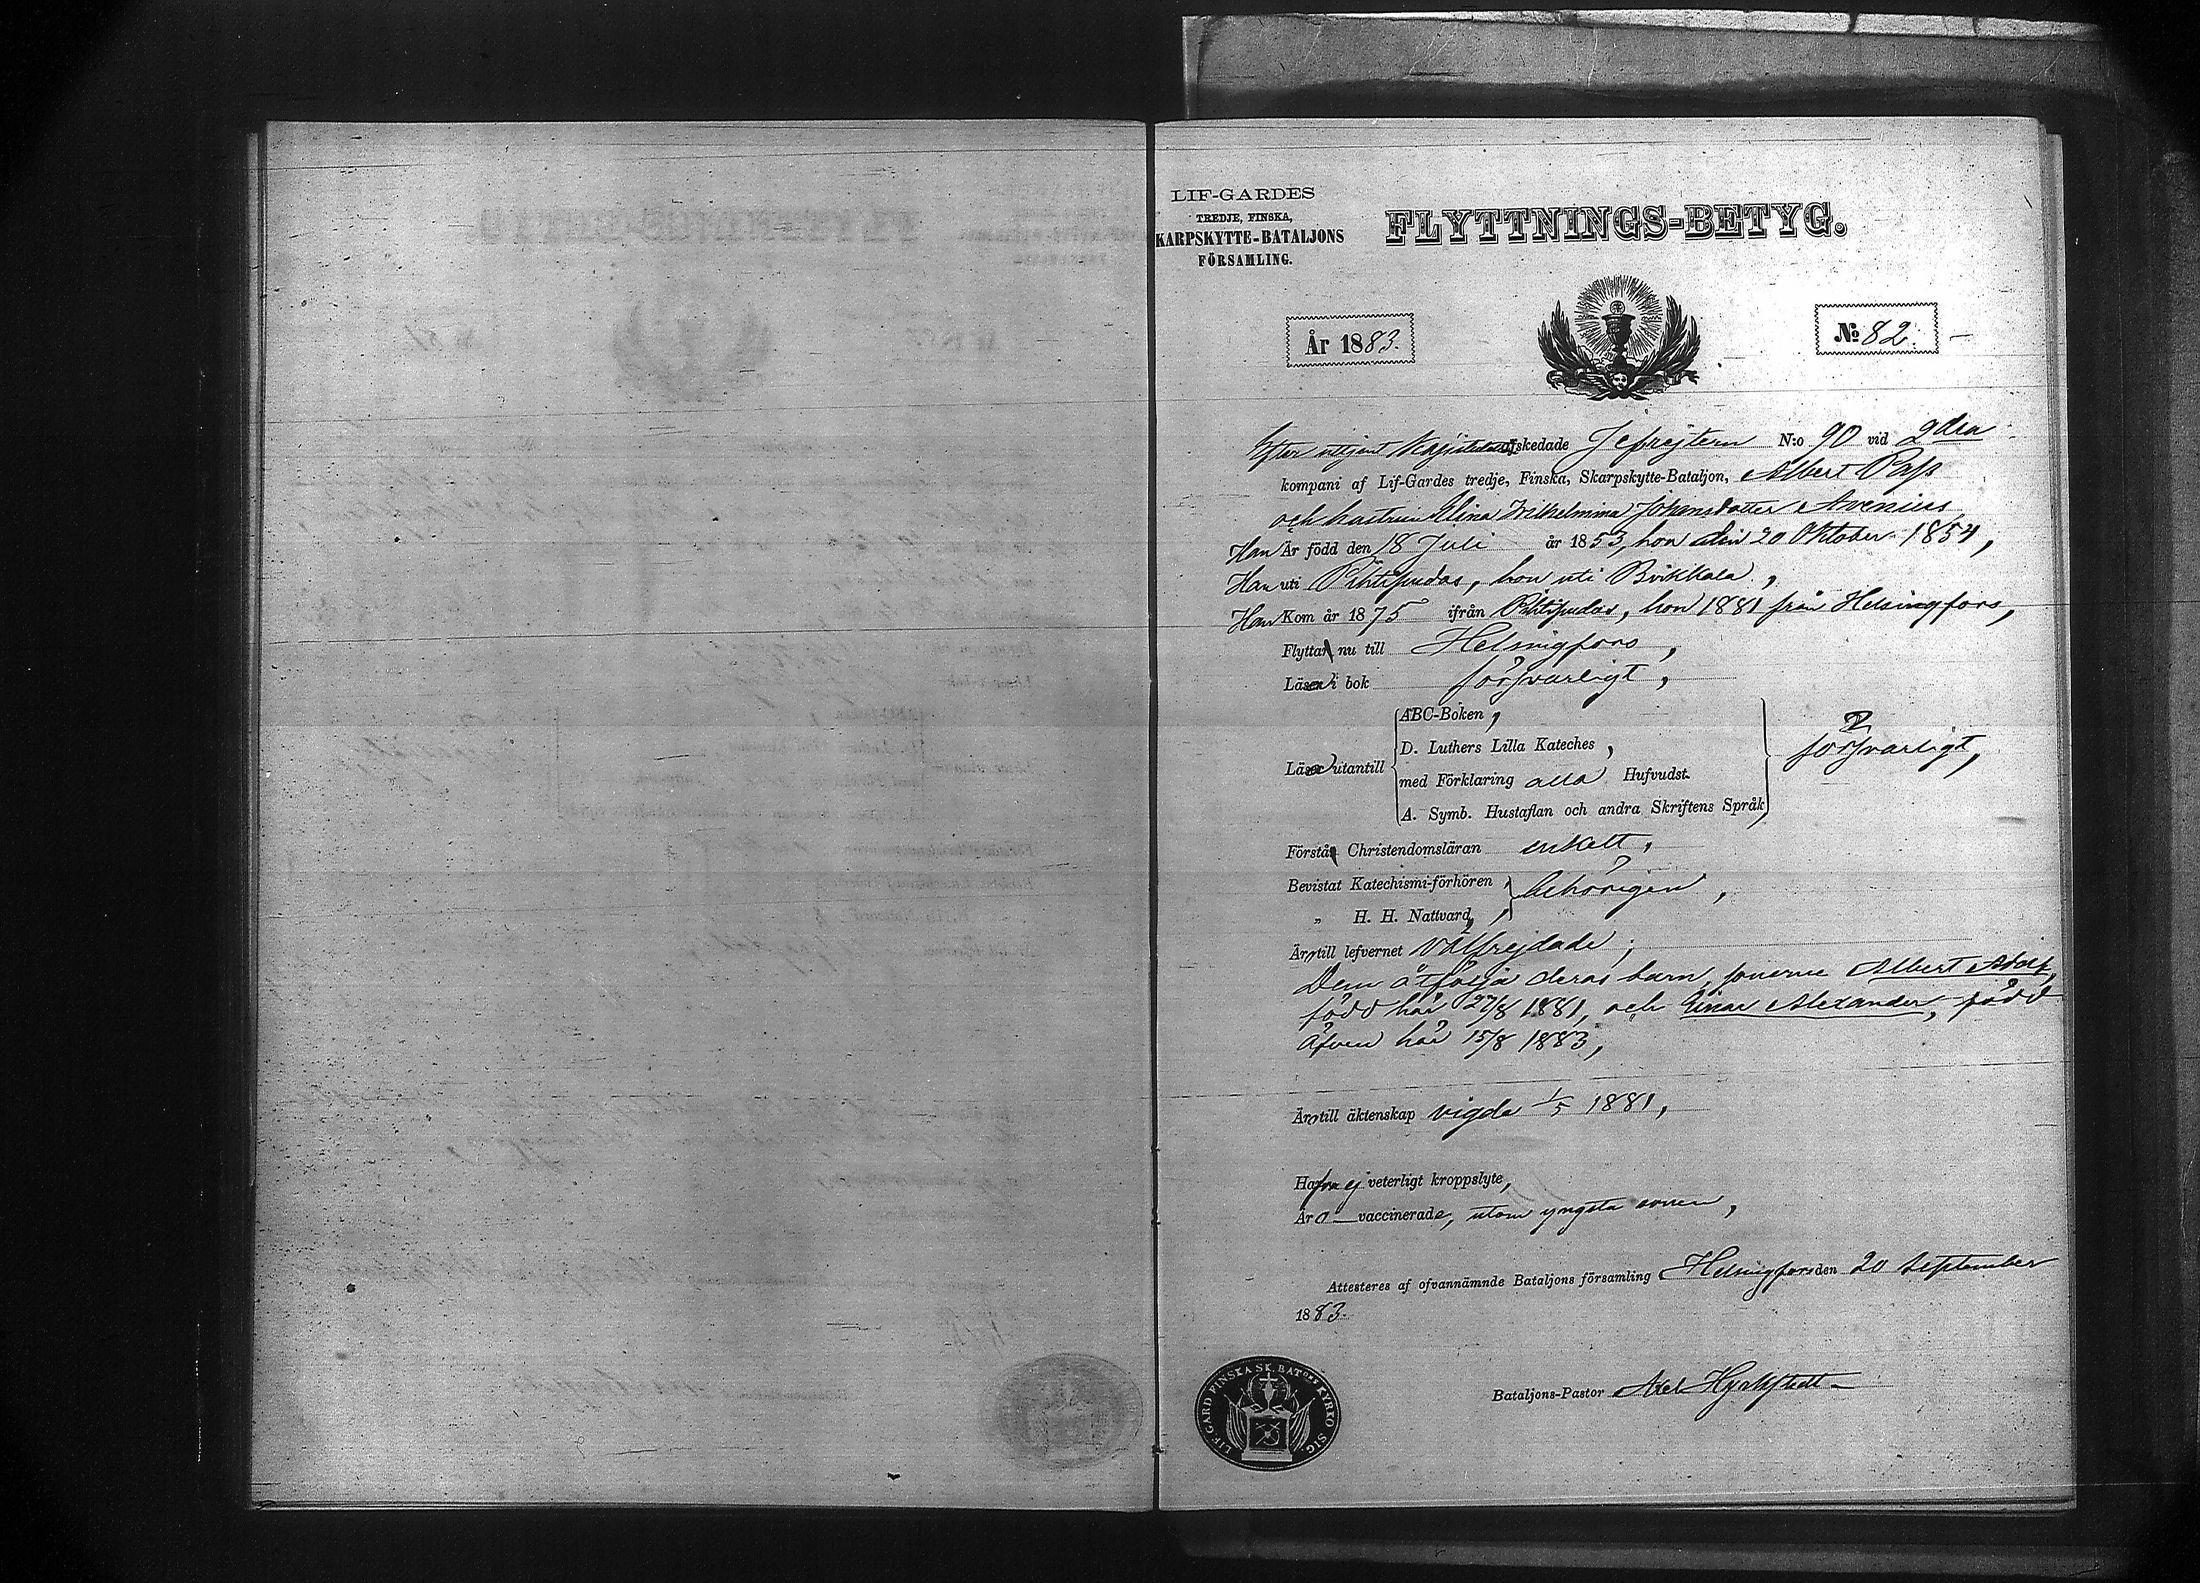 LIF-GARDES
TREDJE, FINSKA,
KARPSKYTTE-BATALJONS
FÖRSAMLING.
FLYTTNINGS-BETYG.
År 1883.
No 82.
Efter utgjent Kapitulation afskedade Jefrejtern N:o 90 vid 2dra
kompani af Lif-Gardes tredje, Finska, Skarpskytte-Bataljon, Albert
och hustrun Wilhelmina Johansdotter Avenius,
Han Är född den 18 Juli år 1853, hon den 20 Oktober 1854,
Han uti Pihtipudas, hon uti
Han Kom år 1875 ifrån Pihtipudas, hon 1881 från Helsingfors,
Flytta nu till Helsingfors,
Läsa i bok försvarligt,
Läsa utantill
ABC-Boken,
D. Luthers Lilla Kateches,
med Förklaring alla Hufvudst.
A. Symb. Hustaflan och andra Skriftens Språk
försvarligt,
Förstå Christendomsläran enkelt,
Bevistat Katechismi-förhören,
„ H. H. Nattvard,
behörigen,
Äro till lefvernet välfrejdade;
Dem åtfölja deras barn, sönerne Albert Adolf,
född här 27/8 1881, och Einar Alexander, född
äfven här 15/8 1883,
Äro till äktenskap vigda 1/5 1881,
Hafva ej veterligt kroppslyte,
Äro vaccinerade, utom yngsta sonen,
Attesteres af ofvannämnde Bataljons församling Helsingfors den 20 September
1883.
Bataljons-Pastor Axel
LIF-GARD FINSKA SK. BAT:ons KYRKO SIG.